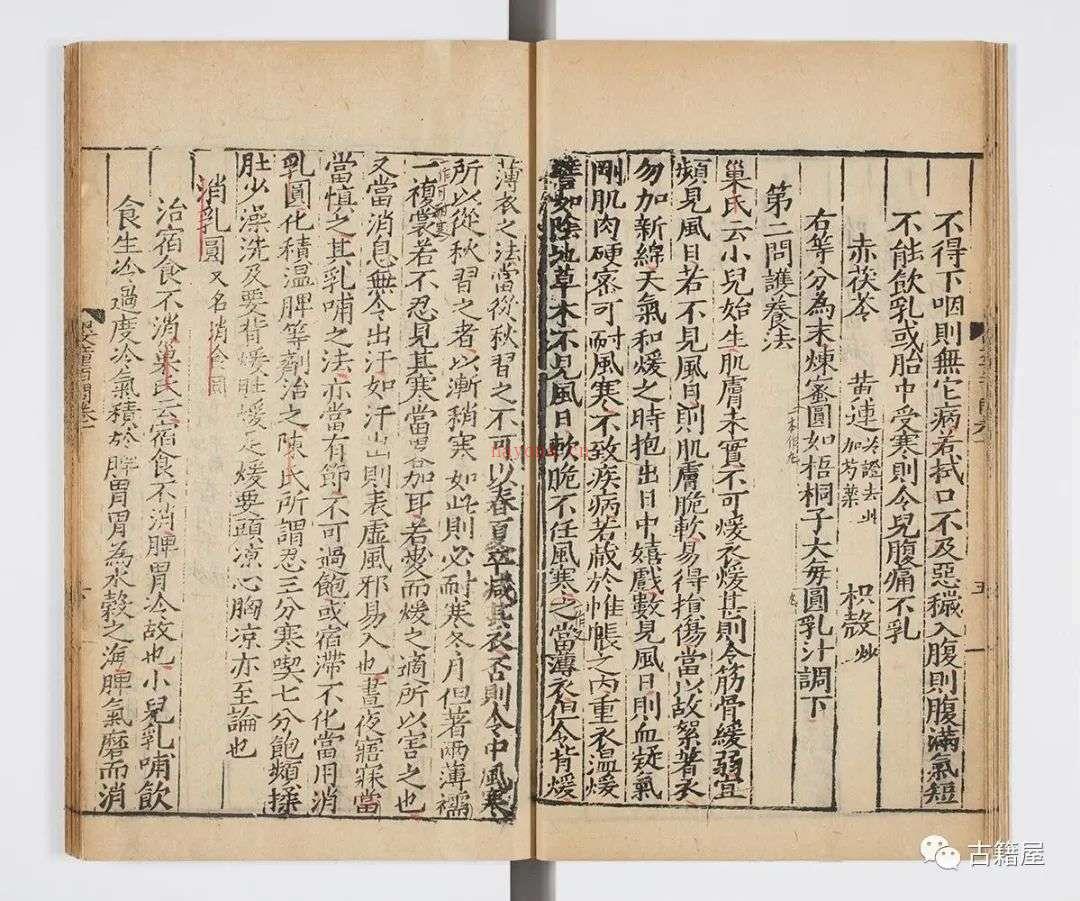 不得下咽則無它病若拭口不及惡穢入腹則腹滿氣短
不能飲乳或胎中受寒則令兒腹痛不乳
赤茯苓 黃連冷證去此加芍藥 枳殼炒
右等分為末煉蜜圓如梧桐子大每圓乳汁調下
第二問護養法
巢氏云小兒始生肌膚未實不可煖衣煖甚則令筋骨緩弱宜
頻見風日若不見風日則肌膚脆軟易得損傷當以故絮著衣
勿加新綿天氣和煖之時抱出日中嬉戲數見風日則血凝氣
剛肌肉硬密可耐風寒不致疾病若藏於帷帳之內重衣溫煖
譬如陰地草木不見風日軟脆不任風寒之當薄衣但令背煖
薄衣之法當從秋習之不可以春夏卒減其衣否則令中風寒
所以從秋習之者以漸稍寒如此則必耐寒冬月但著兩薄襦
一複裳若不忍見其寒當畧加耳若愛而煖之適所以害之也
又當消息無令出汗如汗出則表虛風邪易入也晝夜寤寐當
當慎之其乳哺之法亦當有節不可過飽或宿滯不化當用消
乳圓化積溫脾等劑治之陳氏所謂忍三分寒喫七分飽頻揉
肚少澡洗及要背煖肚煖足煖要頭涼心胸凉亦至論也
消乳圓又名消食圓
治宿食不消巢氏云宿食不消脾胃冷故也小兒乳哺飲
食生冷過度冷氣積於脾胃胃為水穀之海脾氣磨而消
hayona.cn
古籍屋